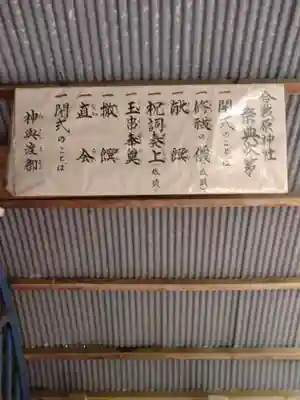 今熊野神社
祭典次第
一開式のことば
一修祓の儀(低頭)
一献饌
一祝詞奏上(低頭)
一玉串奉奠
一撤饌
一直会
一閉式のことば
神輿渡御